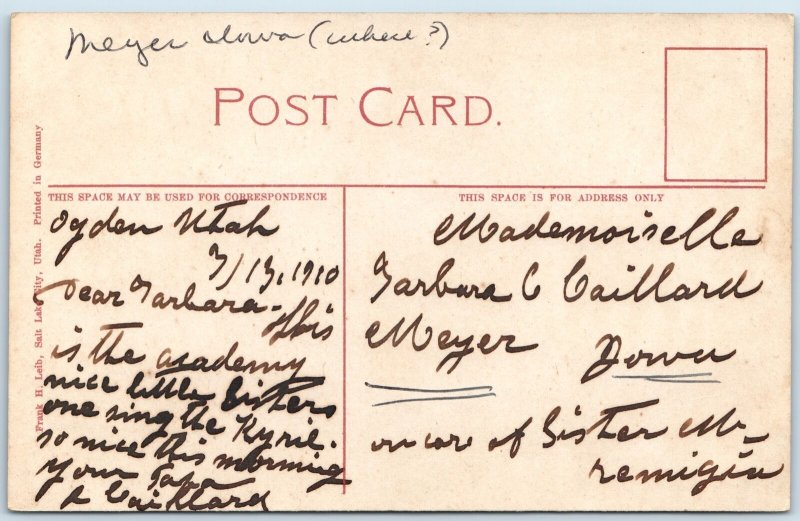 Meyer Iowa (where?)
POST CARD.
THIS SPACE MAY BE USED FOR CORRESPONDENCE
THIS SPACE IS FOR ADDRESS ONLY
Frank H. Leib, Salt Lake City, Utah. Printed in Germany
Ogden Utah
3/13, 1910
Dear Barbara. This
is the academy
nice little Sisters
one sing the Kyrie.
so nice this morning
your Papa
Caillard
Mademoiselle
Barbara C Caillard
Meyer Iowa
care of Sister M-
remigia